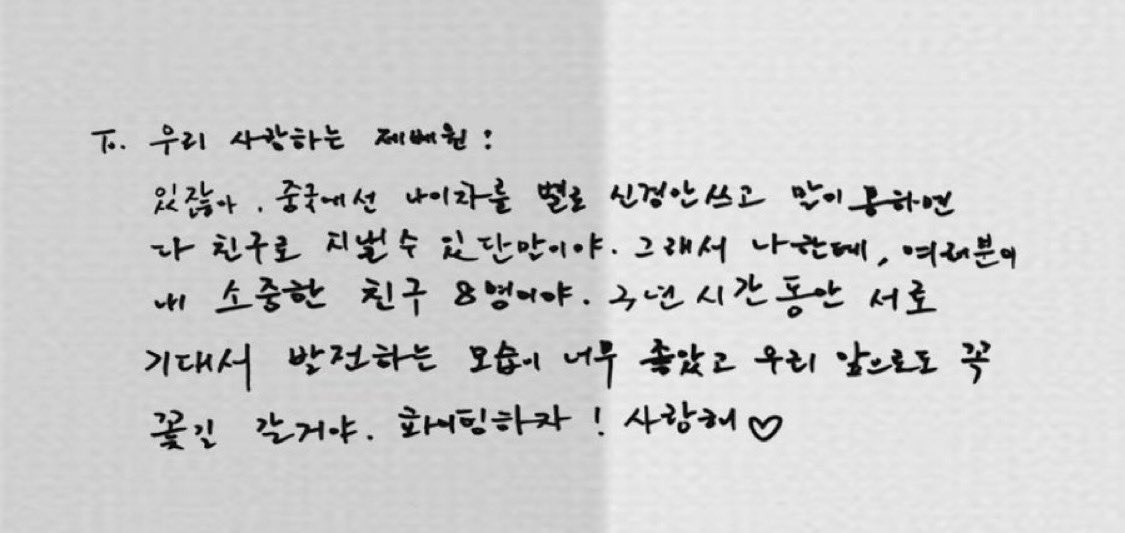 To. 우리 사랑하는 제베원 :
있잖아. 중국에선 나이차를 별로 신경안쓰고 말이 통하면
다 친구로 지낼수 있단말이야. 그래서 나한테, 여러분이
내 소중한 친구 8명이야. 2년 시간동안 서로
기대서 발전하는 모습이 너무 좋았고 우리 앞으로도 꼭
꽃길 갈거야. 화이팅하자! 사랑해♡